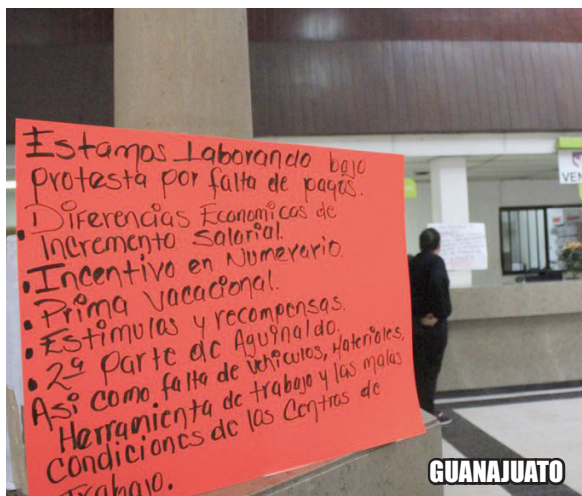 Estamos Laborando bajo
protesta por falta de pagos.
• Diferencias Economicas de
Incremento Salarial.
• Incentivo en Numerario.
• Prima Vacacional.
• Estimulos y recompensas.
• 2ª Parte de Aguinaldo.
Asi como falta de vehiculos, Materiales,
Herramienta de trabajo y las malas
condiciones de los Centros de
Trabajo.
VEN
GUANAJUATO